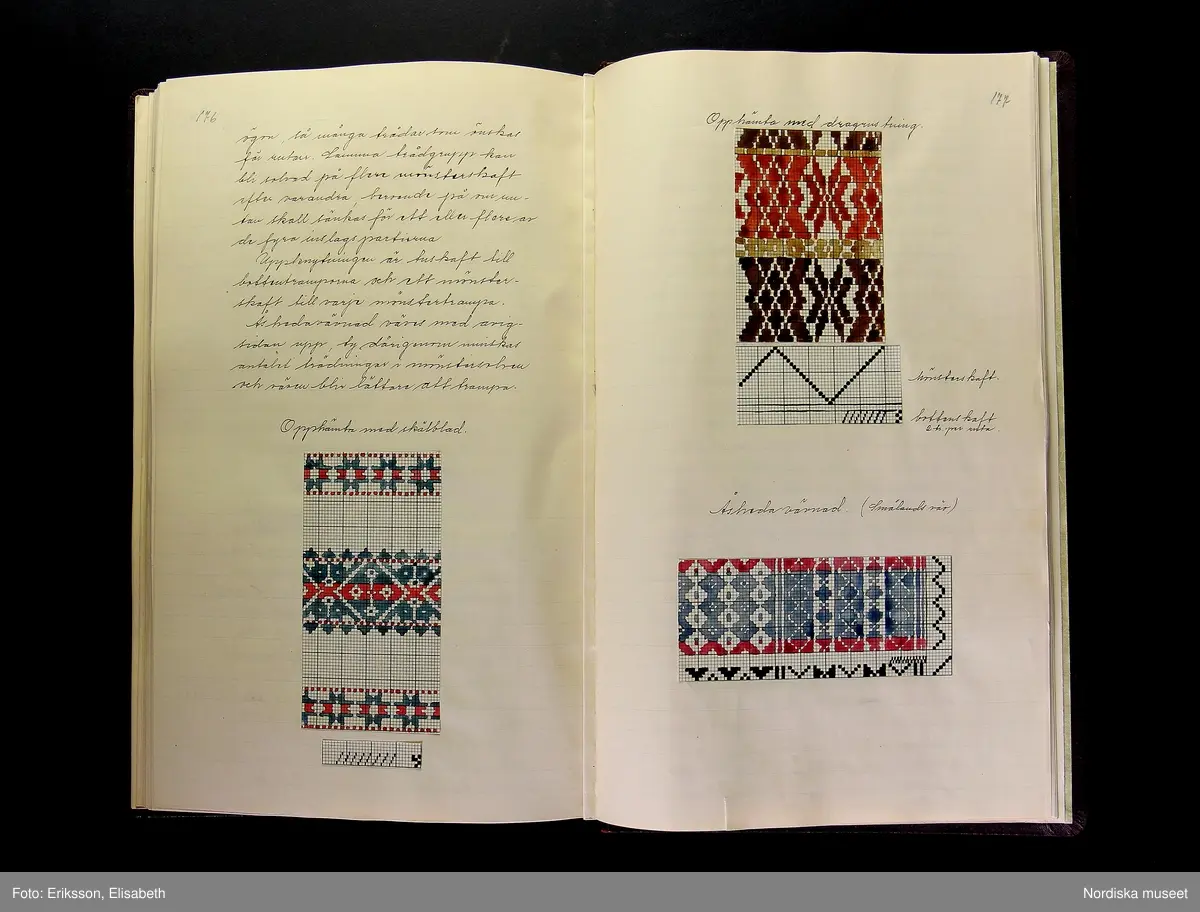 176
ögon, så många trådar som önskas
för rutan. Samma trådgrupp kan
bli solvad på flere mönsterskaft
efter varandra, beroende på om ru-
tan skall sänkas för ett eller flere av
de fyra inslagspartierna
Uppknytningen är tuskaft till
bottentramporna och ett mönster-
skaft till varje mönstertrampa.
Åshedavärnad väves med avig-
sidan upp, ty därigenom minskas
antalet trädningar i mönstersolven
och väven blir lättare att trampa.
Opphämta med skälblad.
177
Opphämta med dragrustning.
Mönsterskaft.
bottenskaft
2 tr. per ruta.
Åsheda värnad. (Smålands väv)
Foto: Eriksson, Elisabeth
Nordiska museet